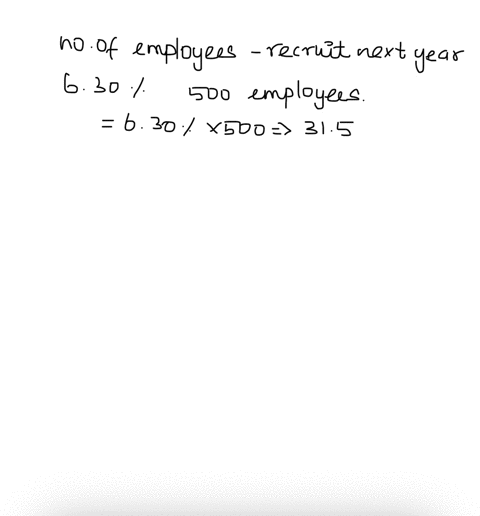 no. of employees - recruit next year
6.30 % 500 employees.
= 6.30 % x500 => 31.5